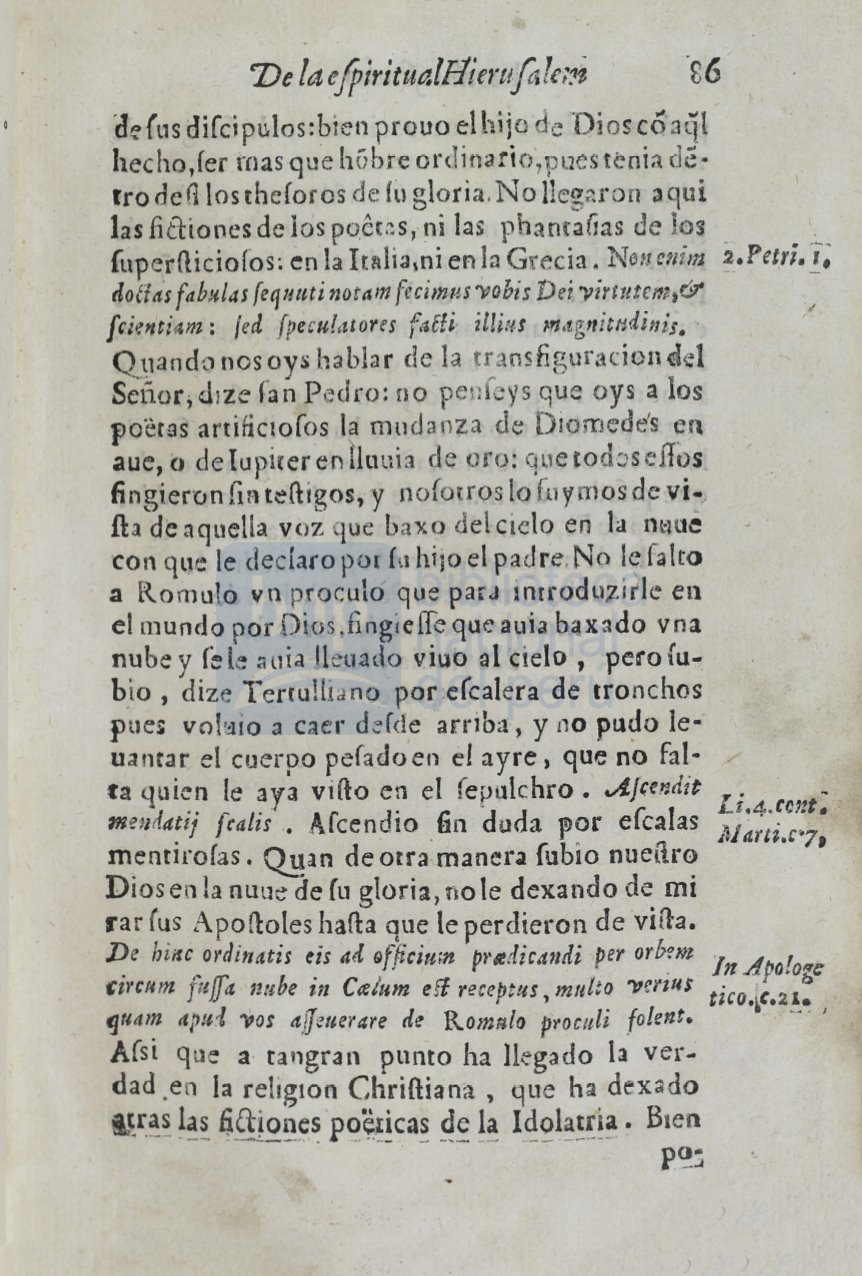 De la eſpiritual Hieruſalem 86
de ſus diſcipulos: bien prouo el hijo de Dios cõ aq̃l
hecho, ſer mas que hõbre ordinario, pues tenia dẽ-
tro de ſi los theſoros de ſu gloria. No llegaron aqui
las fictiones de los poêtas, ni las phantaſias de los
ſuperſticioſos: en la Italia, ni en la Grecia. Non enim
2. Petri. 1.
doctas fabulas ſequuti notam fecimus vobis Dei virtutem, &
ſcientiam: ſed ſpeculatores facti illius magnitudinis.
Quando nos oys hablar de la transfiguracion del
Señor, dize ſan Pedro: no penſeys que oys a los
poëtas artificioſos la mudanza de Diomedes en
aue, o de Iupiter en lluuia de oro: que todos eſſos
fingieron ſin teſtigos, y noſotros lo fuymos de vi-
ſta de aquella voz que baxo del cielo en la nuue
con que le declaro por ſu hijo el padre. No le falto
a Romulo vn proculo que para introduzirle en
el mundo por Dios, fingieſſe que auia baxado vna
nube y ſe le auia lleuado viuo al cielo, pero ſu-
bio, dize Tertulliano por eſcalera de tronchos
pues voluio a caer deſde arriba, y no pudo le-
uantar el cuerpo peſado en el ayre, que no fal-
ta quien le aya viſto en el ſepulchro. Aſcendit
Li. 4. cont.
mendatij ſcalis. Aſcendio ſin duda por eſcalas
Marti. c. 7,
mentiroſas. Quan de otra manera ſubio nueſtro
Dios en la nuue de ſu gloria, no le dexando de mi
rar ſus Apoſtoles haſta que le perdieron de viſta.
De hinc ordinatis eis ad officium prædicandi per orbem
In Apologe
circum fuſſa nube in Cælum eſt receptus, multo verius
tico. c. 21.
quam apud vos aſſeuerare de Romulo proculi ſolent.
Aſsi que a tan gran punto ha llegado la ver-
dad en la religion Chriſtiana, que ha dexado
atras las fictiones poëticas de la Idolatria. Bien
po-